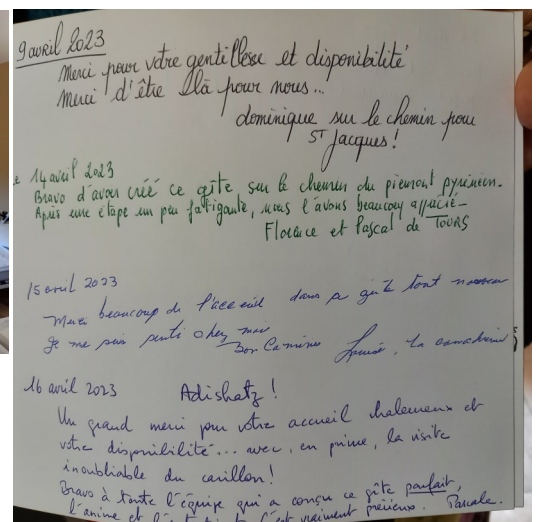 9 avril 2023
Merci pour votre gentillesse et disponibilité
Merci d'être là pour nous...
dominique sur le chemin pour
St Jacques!
14 avril 2023
Bravo d'avoir créé ce gîte, sur le chemin du piemont pyrénéen.
Après une étape un peu fatigante, nous l'avons beaucoup apprécié_
Florence et Pascal de TOURS
15 avril 2023
Merci beaucoup de l'accueil dans ce gîte tout nouveau
Je me suis senti chez moi
Bon Camino Louise, la canadienne
16 avril 2023 Adishatz!
Un grand merci pour votre accueil chaleureux et
votre disponibilité... avec, en prime, la visite
inoubliable du carillon!
Bravo à toute l'équipe qui a conçu ce gîte parfait,
l'anime et C'est vraiment précieux. Pascale.